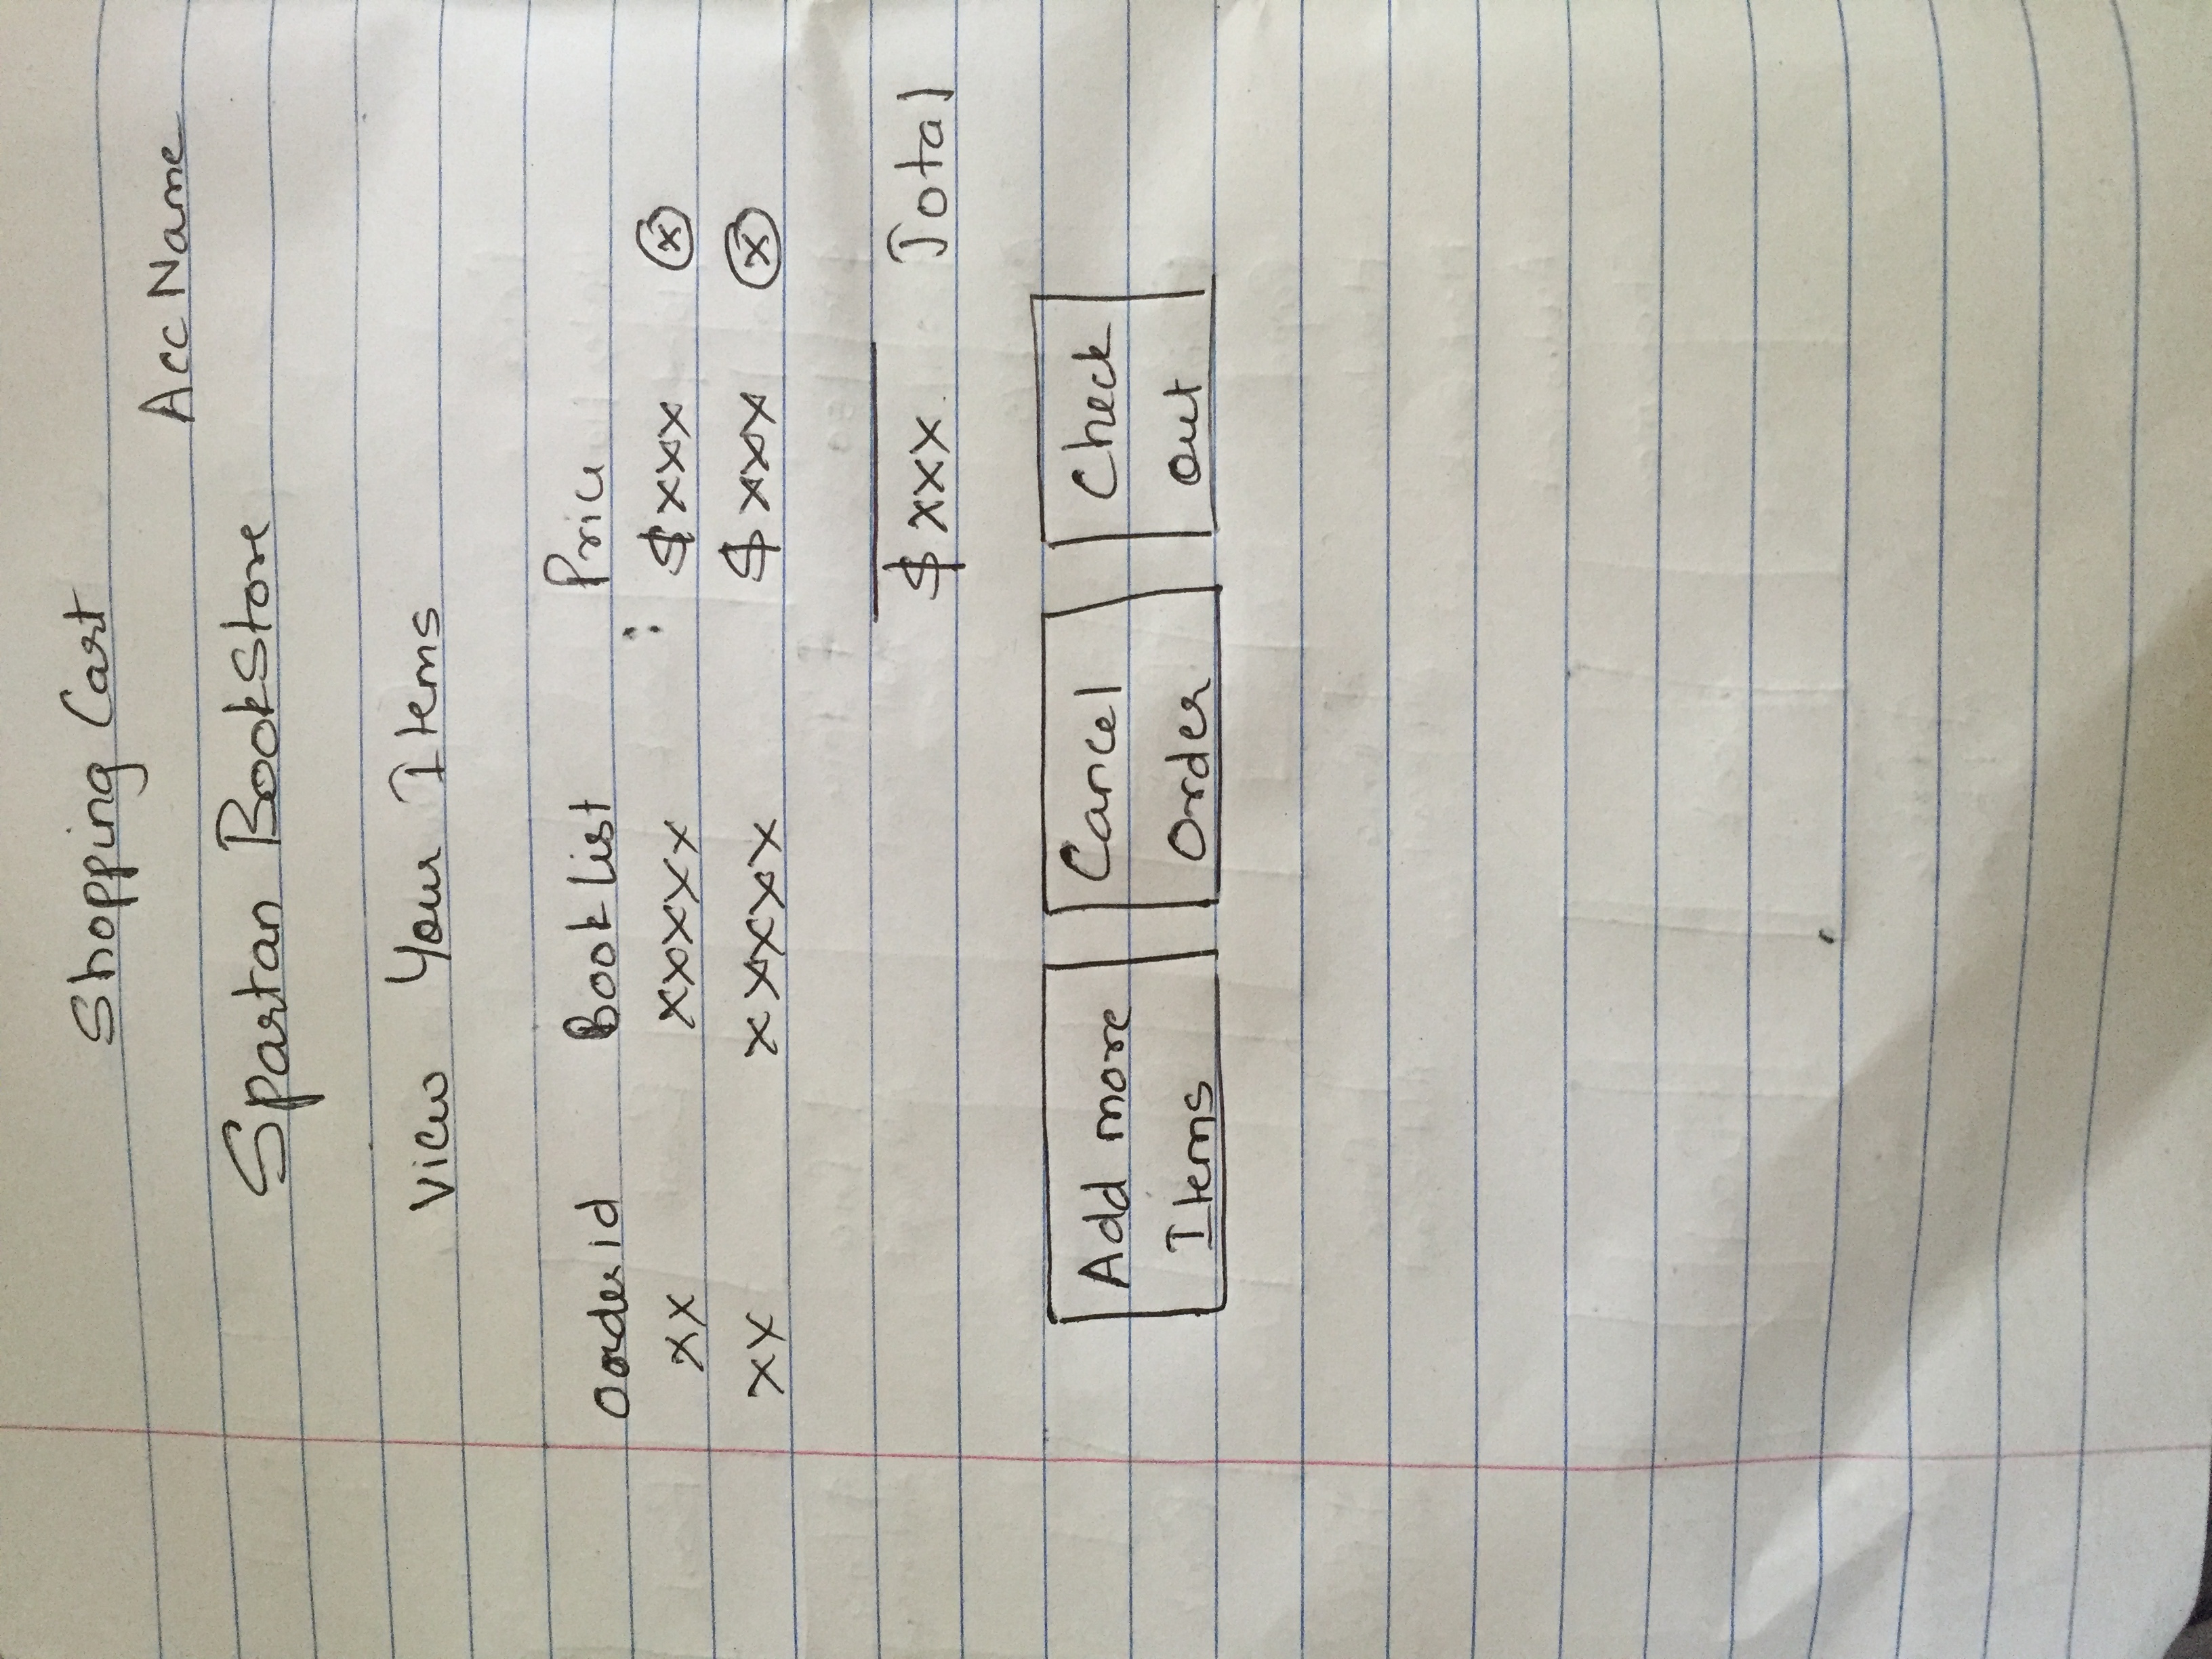 Shopping Cart
Acc Name
Spartan BookStore
View Your Items
Oorder id Book List Price
XX XXXXX : $XXX ⓧ
XX XXXXX $XXX ⓧ
$XXX Total
Add more Cancel Check
Items Order out